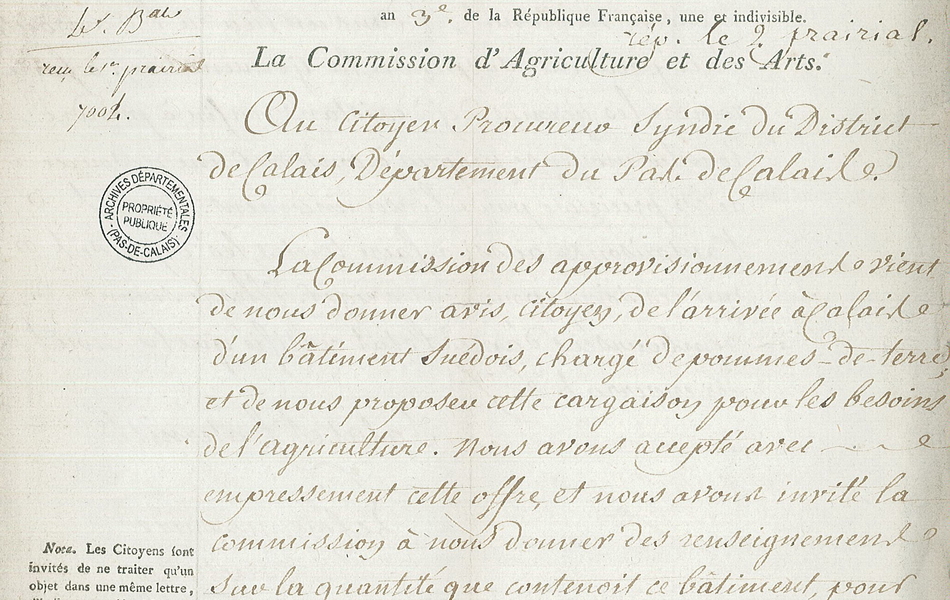 an 3e. de la République Française, une et indivisible.
rép. le 2 prairial.
reçu le 1er prairial
La Commission d'Agriculture et des Arts.
Au Citoyen Procureur Syndic du District
de Calais, Département du Pas de Calais.
ARCHIVES DÉPARTEMENTALES
PROPRIÉTÉ
PUBLIQUE
(PAS-DE-CALAIS)
La Commission des approvisionnemens vient
de nous donner avis, Citoyen, de l'arrivée à Calais
d'un bâtiment Suédois, chargé de pommes-de-terre,
et de nous proposer cette cargaison pour les besoins
de l'agriculture. Nous avons accepté avec
empressement cette offre, et nous avons invité la
commission à nous donner des renseignemens
sur la quantité que contenoit ce bâtiment, pour
Nota. Les Citoyens sont
invités de ne traiter qu'un
objet dans une même lettre,